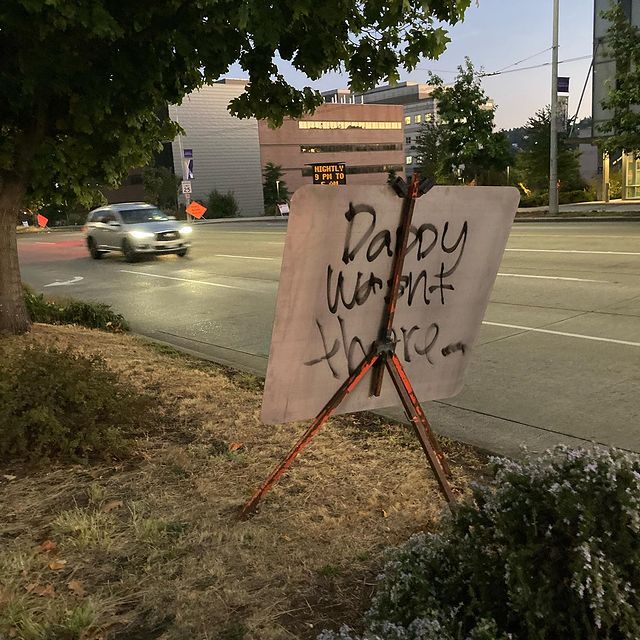 NIGHTLY
9 PM TO
5 AM
Daddy
Wasnt
there...